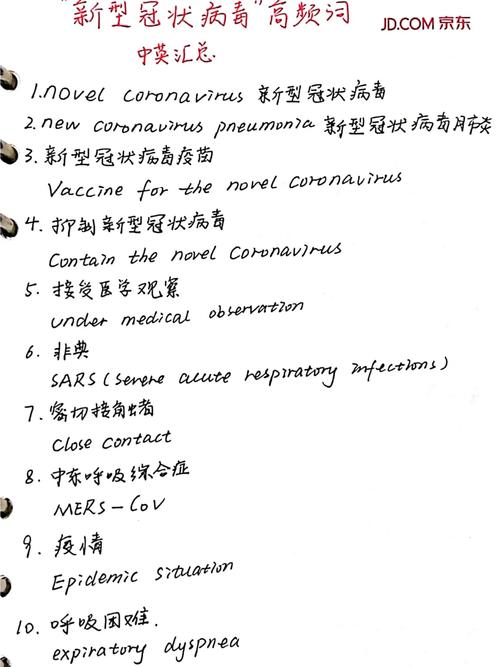 "新型冠状病毒"高频词
JD.COM 京东
中英汇总
1.novel coronavirus 新型冠状病毒
2.new coronavirus pneumonia 新型冠状病毒肺炎
3.新型冠状病毒疫苗
Vaccine for the novel coronavirus
4.抑制新型冠状病毒
Contain the novel Coronavirus
5.接受医学观察
under medical observation
6.非典
SARS(Severe acute respiratory infections)
7.密切接触者
Close contact
8.中东呼吸综合症
MERS-CoV
9.疫情
Epidemic situation
10.呼吸困难.
expiratory dyspnea